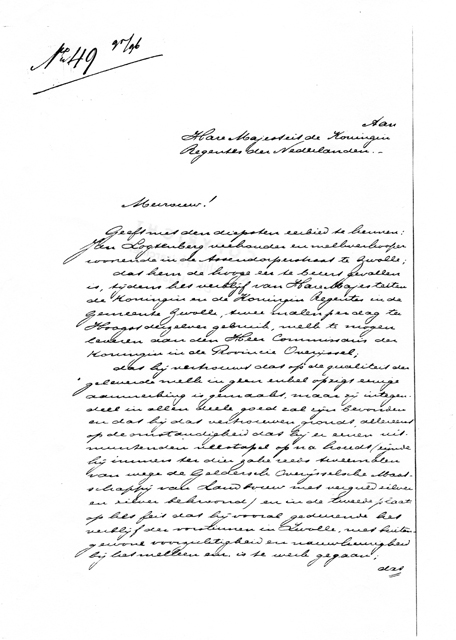 No 49 95/96
Aan
Hare Majesteit de Koningin
Regentes der Nederlanden.-
Mevrouw!
Geeft met den diepsten eerbied te kennen:
Jan Logtenberg veehouder en melkverkooper
wonende in de Assendorperstraat te Zwolle;
dat hem de hooge eer te beurt gevallen
is, tijdens het verblijf van Hare Majesteiten
de Koningin en de Koningin Regentes in de
Gemeente Zwolle, twee malen per dag te
Hoogst derzelver gebruik, melk te mogen
leveren aan den Heer Commissaris der
Koningin in de Provincie Overijssel,
dat hij vertrouwt dat op de qualiteit der
geleverde melk in geen enkel opzigt eenige
aanmerking is gemaakt, maar zij integen-
deel in allen deele goed zal zijn bevonden
en dat hij dat vertrouwen grondt allereerst
op de omstandigheid dat hij er eenen uit-
muntenden veestapel op na houdt, (zijnde
hij immers ten jare reeds tweemalen
van wege de Geldersch Overijsselsche Maat-
schappij van Landbouw met verguld zilver
en zilver bekroond) en in de tweede plaats
op het feit dat hij vooral gedurende het
verblijf der vorstinnen in Zwolle, met buiten-
gewone voorzichtigheid en nauwkeurigheid
bij het melken enz. is te werk gegaan;
dat